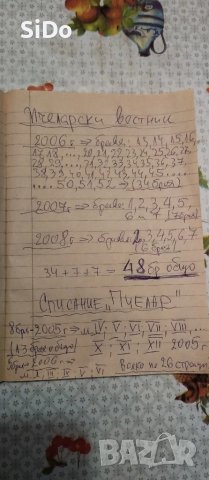 SiDo
Пчеларски вестник
2006г => броеве: 13, 14, 15, 16,
17, 18, ..., 20, 21, 22, 23, 24, 25, 26, 27
28, 29, ... 31, 32, 33, 34, 35, 36, 37,
38, 39, 40, 41, 42, 43, 44, 45 ......
...... 50, 51, 52 => (34 броя)
2007г => броеве: 1, 2, 3, 4, 5,
6 7 (7 броя)
2008г => броеве: 1, 3, 4, 5, 6, 7
34 + 7 + 7 = 48 бр общо
Списание „Пчелар"
8бр - 2005г => м. IV; V; VI; VII; VIII, ...
(13 броя общо) X; XI; XII 2005г
5бр - 2006г =>
м. I; II; IV; V; VI
Всяко по 26 страници
BAZAR
bg